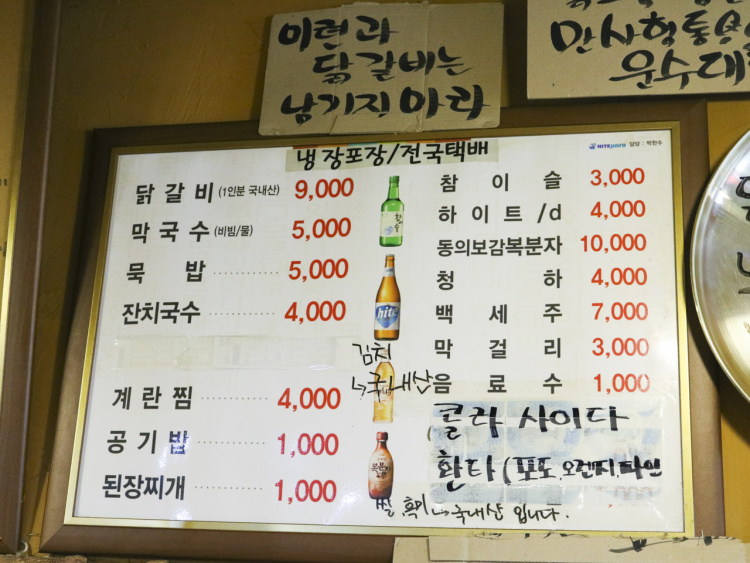 이련과
닭갈비는
남기지 마라
만사형통
운수대
냉장포장/전국택배
HITEJINRO 담당 : 박한수
닭갈비 (1인분 국내산) 9,000
막국수 (비빔/물) 5,000
묵밥 5,000
잔치국수 4,000
계란찜 4,000
공기밥 1,000
된장찌개 1,000
참이슬 3,000
하이트/d 4,000
동의보감복분자 10,000
청하 4,000
백세주 7,000
막걸리 3,000
음료수 1,000
김치
↳국내산
콜라 사이다
환타 (포도, 오렌지 파인
쌀, 흑미 ↳국내산 입니다.
hite